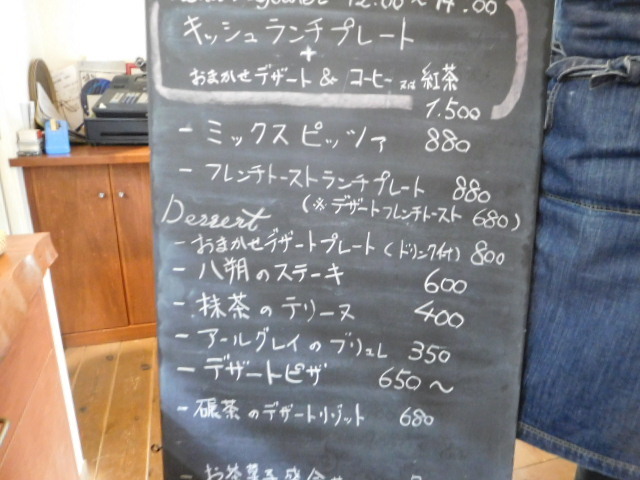 12:00〜14:00
キッシュランチプレート
+
おまかせデザート & コーヒー又は紅茶
1.500
- ミックスピッツァ 880
- フレンチトーストランチプレート 880
(※デザートフレンチトースト 680)
Dessert
- おまかせデザートプレート(ドリンク付) 800
- 八朔のステーキ 600
- 抹茶のテリーヌ 400
- アールグレイのブリュレ 350
- デザートピザ 650〜
- 碾茶のデザートリゾット 680
- お茶菓子盛合せ